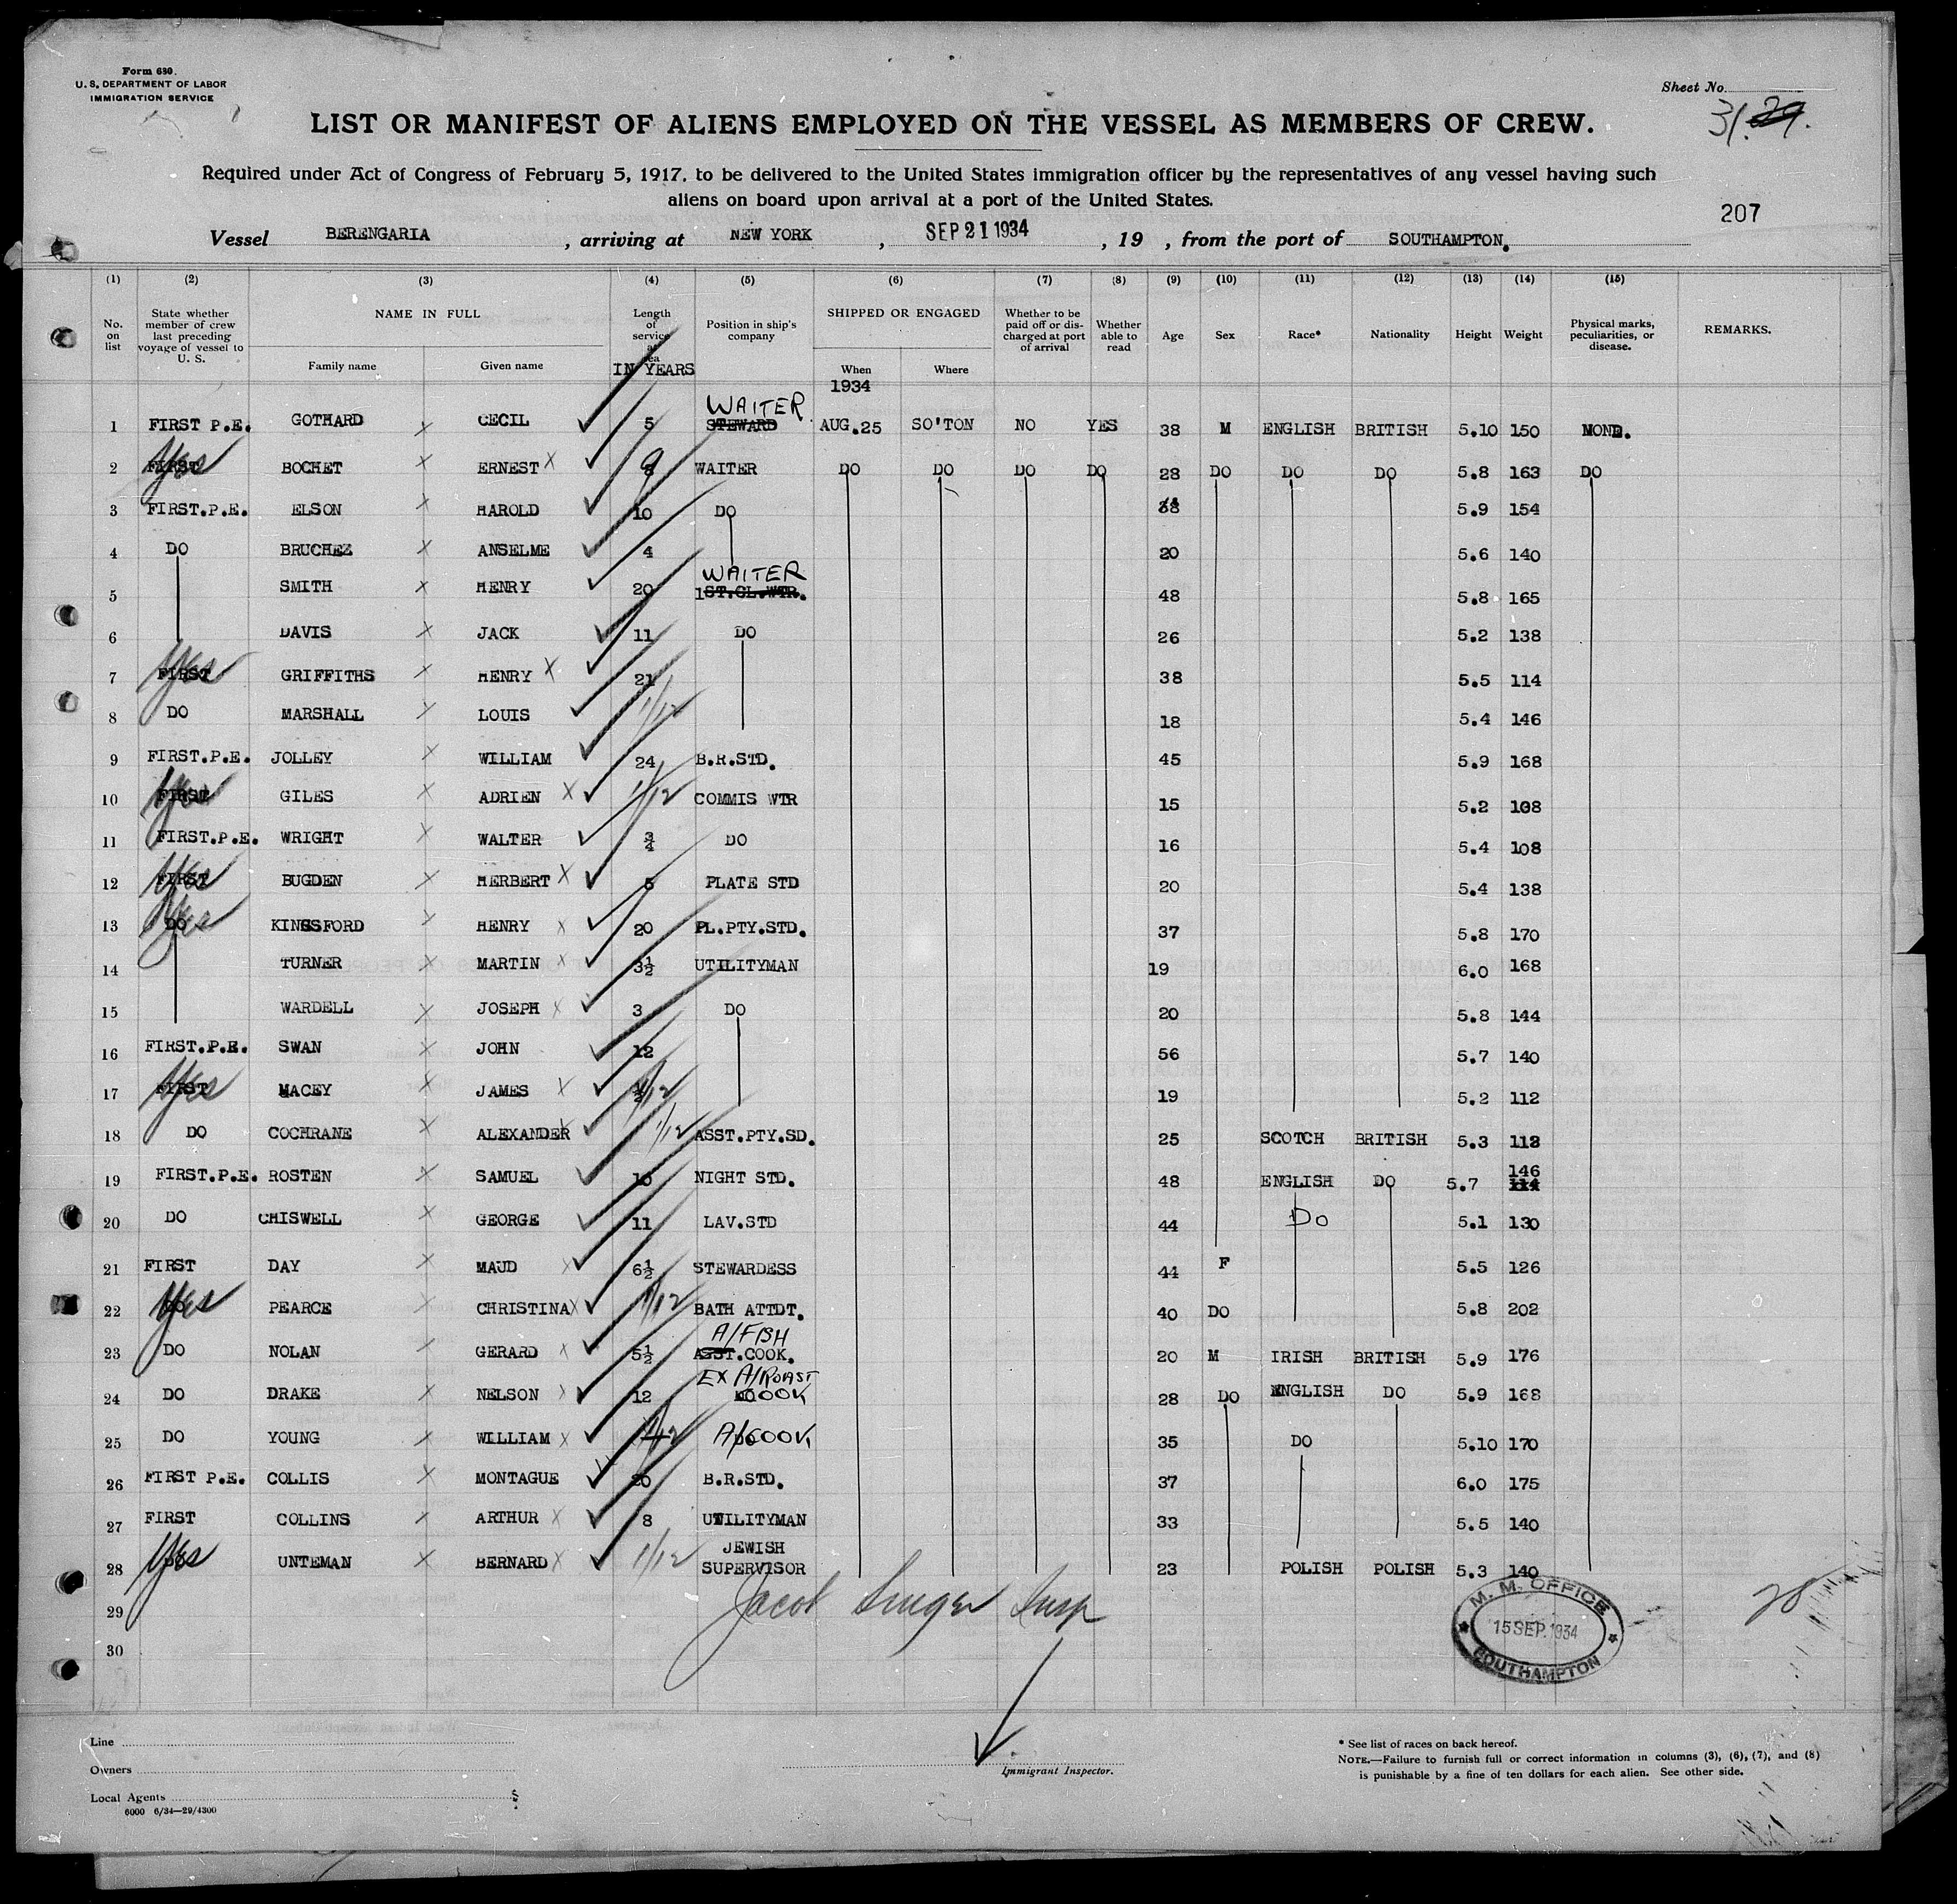 Form 680.
U. S. DEPARTMENT OF LABOR
IMMIGRATION SERVICE
Sheet No.
31.
LIST OR MANIFEST OF ALIENS EMPLOYED ON THE VESSEL AS MEMBERS OF CREW.
Required under Act of Congress of February 5, 1917, to be delivered to the United States immigration officer by the representatives of any vessel having such
aliens on board upon arrival at a port of the United States.
207
Vessel BERENGARIA , arriving at NEW YORK , SEP 21 1934 , 19 , from the port of SOUTHAMPTON.
(1) (2) (3) (4) (5) (6) (7) (8) (9) (10) (11) (12) (13) (14) (15)
No. on list State whether member of crew last preceding voyage of vessel to U. S. NAME IN FULL Family name Given name Length of service at sea IN YEARS Position in ship's company SHIPPED OR ENGAGED When 1934 Where Whether to be paid off or discharged at port of arrival Whether able to read Age Sex Race* Nationality Height Weight Physical marks, peculiarities, or disease. REMARKS.
1 FIRST P.E. GOTHARD CECIL 5 WAITER STEWARD AUG.25 SO'TON NO YES 38 M ENGLISH BRITISH 5.10 150 NONE.
2 FIRST Yes BOCHET ERNEST 9 WAITER DO DO DO DO 28 DO DO DO 5.8 163 DO
3 FIRST.P.E. ELSON HAROLD 10 DO 5.9 154
4 DO BRUCHEZ ANSELME 4 20 5.6 140
5 SMITH HENRY 20 WAITER 1ST.CL.WTR. 48 5.8 165
6 DAVIS JACK 11 DO 26 5.2 138
7 FIRST Yes GRIFFITHS HENRY 21 38 5.5 114
8 DO MARSHALL LOUIS 1/12 18 5.4 146
9 FIRST.P.E. JOLLEY WILLIAM 24 B.R.STD. 45 5.9 168
10 FIRST Yes GILES ADRIEN 1/12 COMMIS WTR 15 5.2 108
11 FIRST.P.E. WRIGHT WALTER 3/4 DO 16 5.4 108
12 FIRST Yes BUGDEN HERBERT 5 PLATE STD 20 5.4 138
13 DO Yes KINGSFORD HENRY 20 PL.PTY.STD. 37 5.8 170
14 TURNER MARTIN 3½ UTILITYMAN 19 6.0 168
15 WARDELL JOSEPH 3 DO 20 5.8 144
16 FIRST.P.E. SWAN JOHN 12 56 5.7 140
17 FIRST Yes MACEY JAMES 1/12 19 5.2 112
18 DO COCHRANE ALEXANDER 1/12 ASST.PTY.SD. 25 SCOTCH BRITISH 5.3 112
19 FIRST.P.E. ROSTEN SAMUEL 10 NIGHT STD. 48 ENGLISH DO 5.7 146
20 DO CHISWELL GEORGE 11 LAV.STD 44 Do 5.1 130
21 FIRST DAY MAUD 6½ STEWARDESS 44 F 5.5 126
22 DO Yes PEARCE CHRISTINA 1/12 BATH ATTDT. 40 DO 5.8 202
23 DO NOLAN GERARD 5½ A/FISH ASST.COOK. 20 M IRISH BRITISH 5.9 176
24 DO DRAKE NELSON 12 EX A/ROAST COOK 28 DO ENGLISH DO 5.9 168
25 DO YOUNG WILLIAM A/COOK 35 DO 5.10 170
26 FIRST P.E. COLLIS MONTAGUE 20 B.R.STD. 37 6.0 175
27 FIRST COLLINS ARTHUR 8 UTILITYMAN 33 5.5 140
28 Yes UNTEMAN BERNARD 1/12 JEWISH SUPERVISOR 23 POLISH POLISH 5.3 140
29
30
Jacob Singer Insp
28
M. M. OFFICE
15 SEP. 1934
SOUTHAMPTON
Line
Owners
Local Agents
6000 6/34—29/4300
Immigrant Inspector.
* See list of races on back hereof.
NOTE.—Failure to furnish full or correct information in columns (3), (6), (7), and (8)
is punishable by a fine of ten dollars for each alien. See other side.